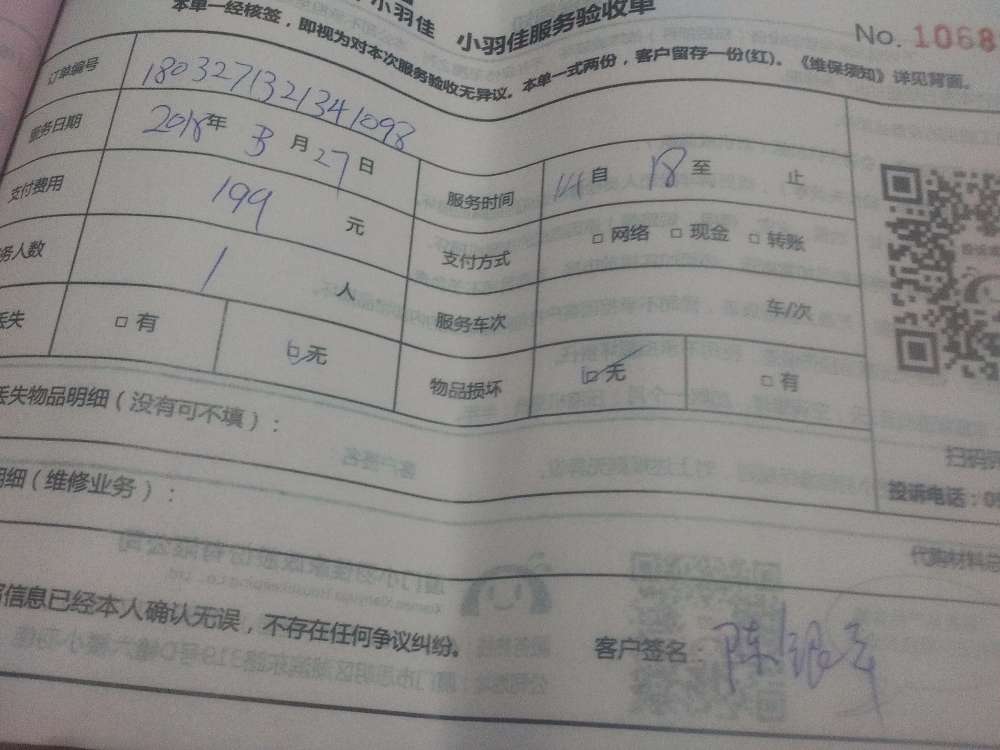 小羽佳 小羽佳服务验收单
No. 1068
本单一经核签，即视为对本次服务验收无异议。本单一式两份，客户留存一份(红)。《维保须知》详见背面。
订单编号 180327131341098
服务日期 2018年 3月27日 服务时间 14自 18至 止
支付费用 199 元 支付方式 □ 网络 □ 现金 □ 转账
务人数 1 人 服务车次 车/次
丢失 □ 有 □ 无 物品损坏 □ 无 □ 有
丢失物品明细（没有可不填）：
明细（维修业务）：
扫码
投诉电话：0
代购材料
信息已经本人确认无误，不存在任何争议纠纷。
客户签名：陈银